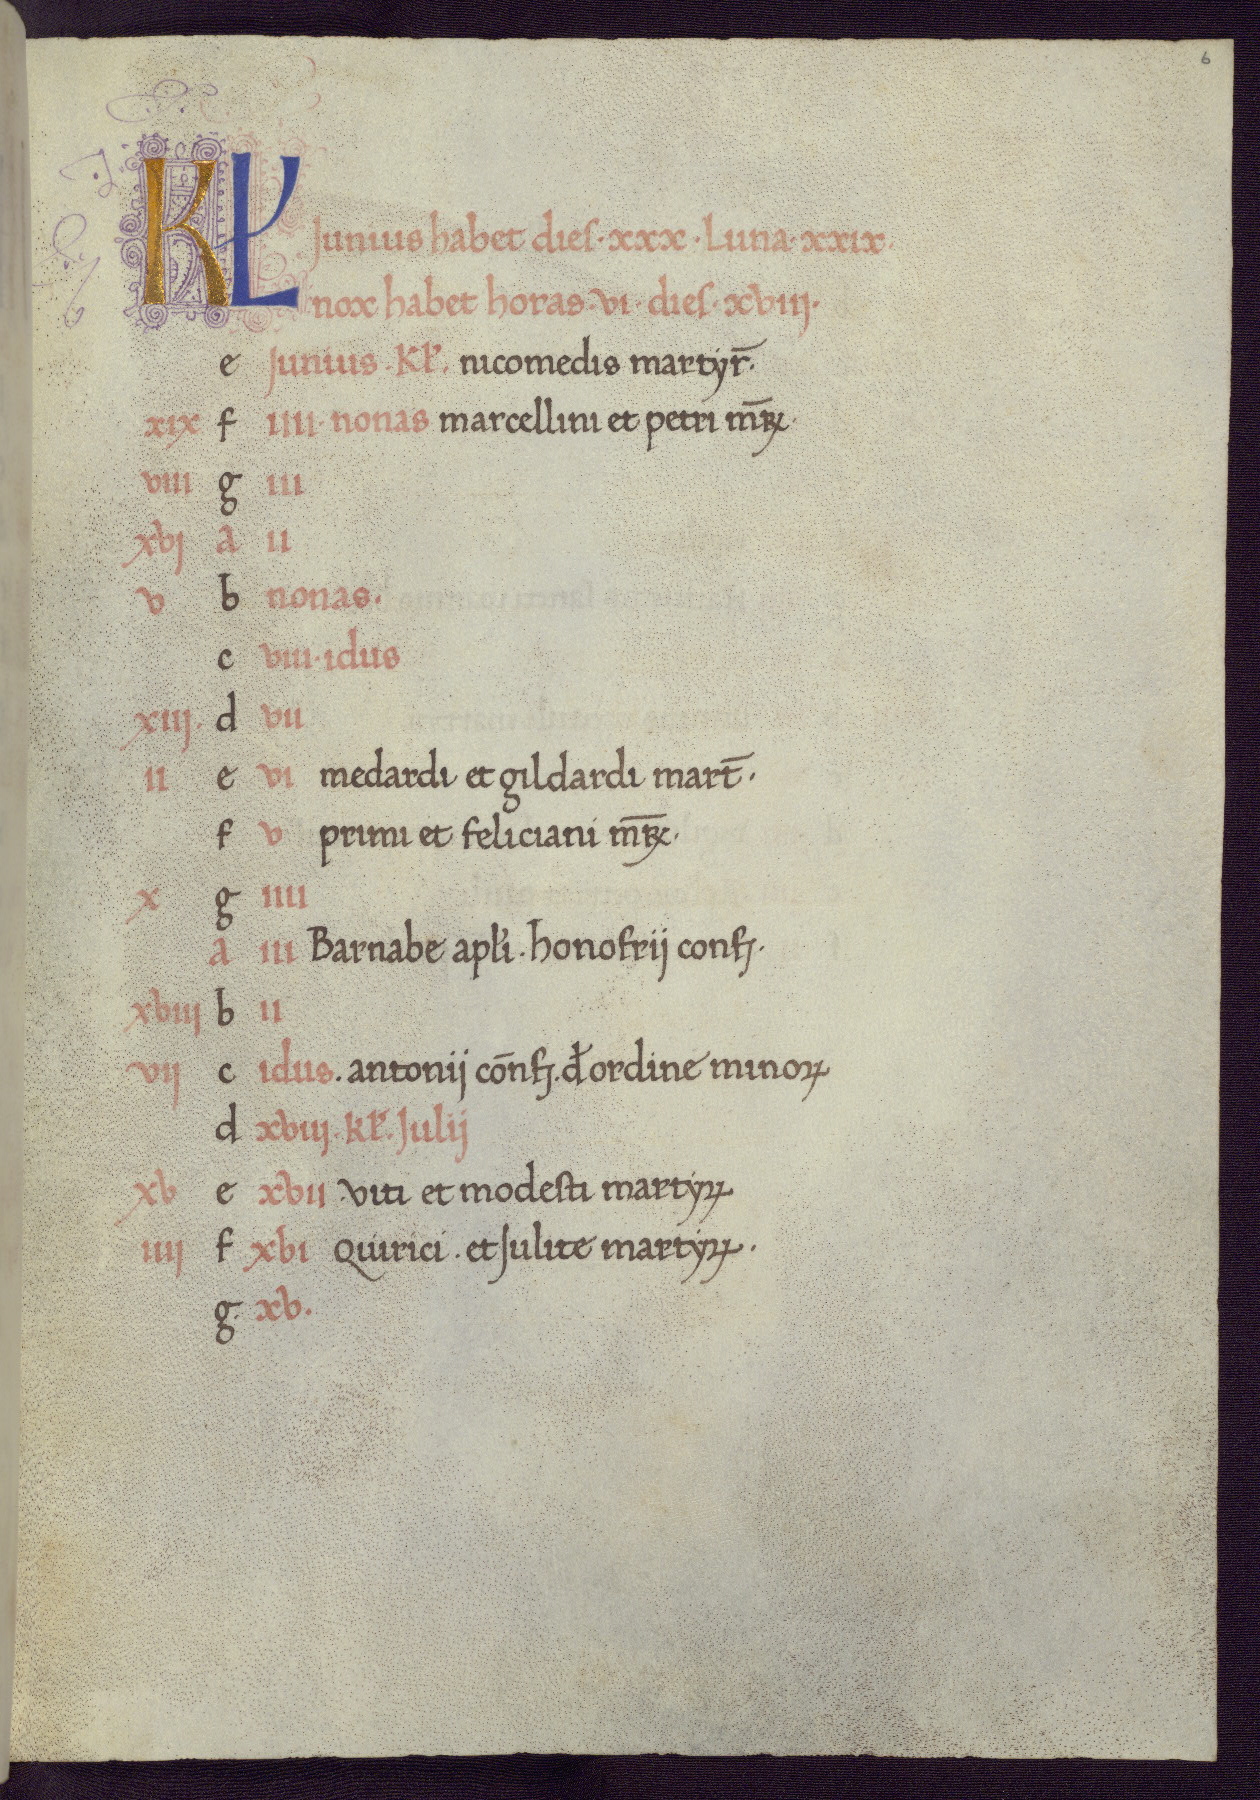 6
KL Junius habet dies · xxx · Luna · xxix ·
nox habet horas · vi · dies · xviij ·
e Junius · Kl̄ · nicomedis martyr̄ ·
xix f iiii · nonas marcellini et petri m̄ꝝ ·
viii g iii
xvj a ii
v b nonas ·
c viii · idus
xiij · d vii
ii e vi medardi et gildardi mart̄ ·
f v primi et feliciani m̄ꝝ ·
x g iiii
a iii Barnabe apl̄i · honofrij conf ·
xviij b ii
vij c idus · antonij cōnf · đ ordine minoꝝ
d xviij · kl̄ · Julij
xv e xvii viti et modesti martyꝝ
iiij f xvi Quirici · et Julite martyꝝ ·
g · xv ·